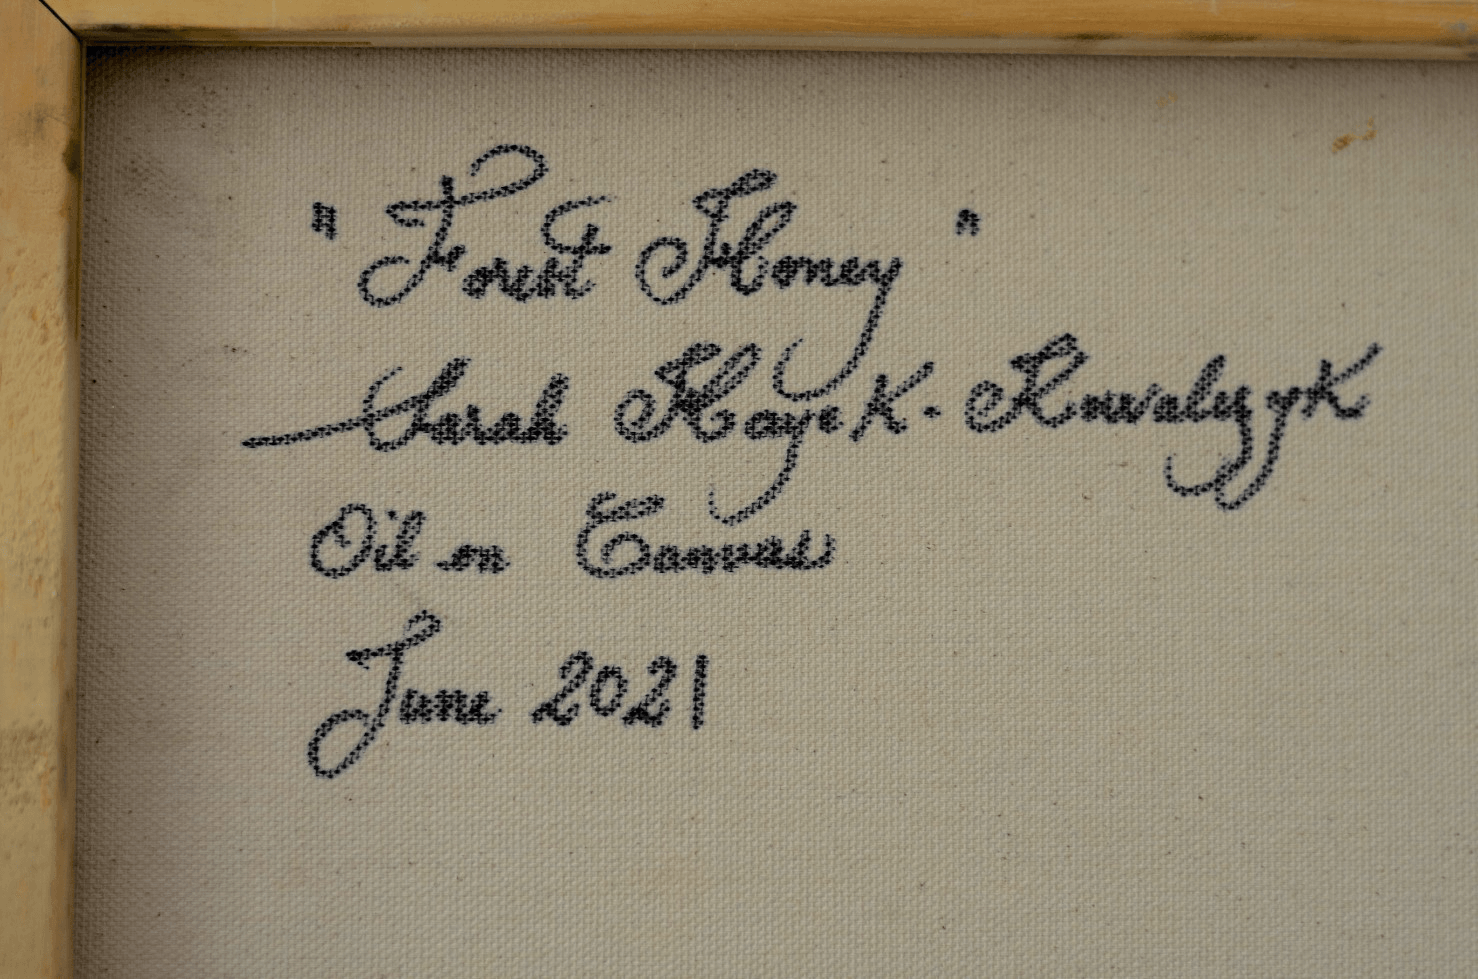 "Forest Honey"
Sarah Hayek-Kowalczyk
Oil on Canvas
June 2021